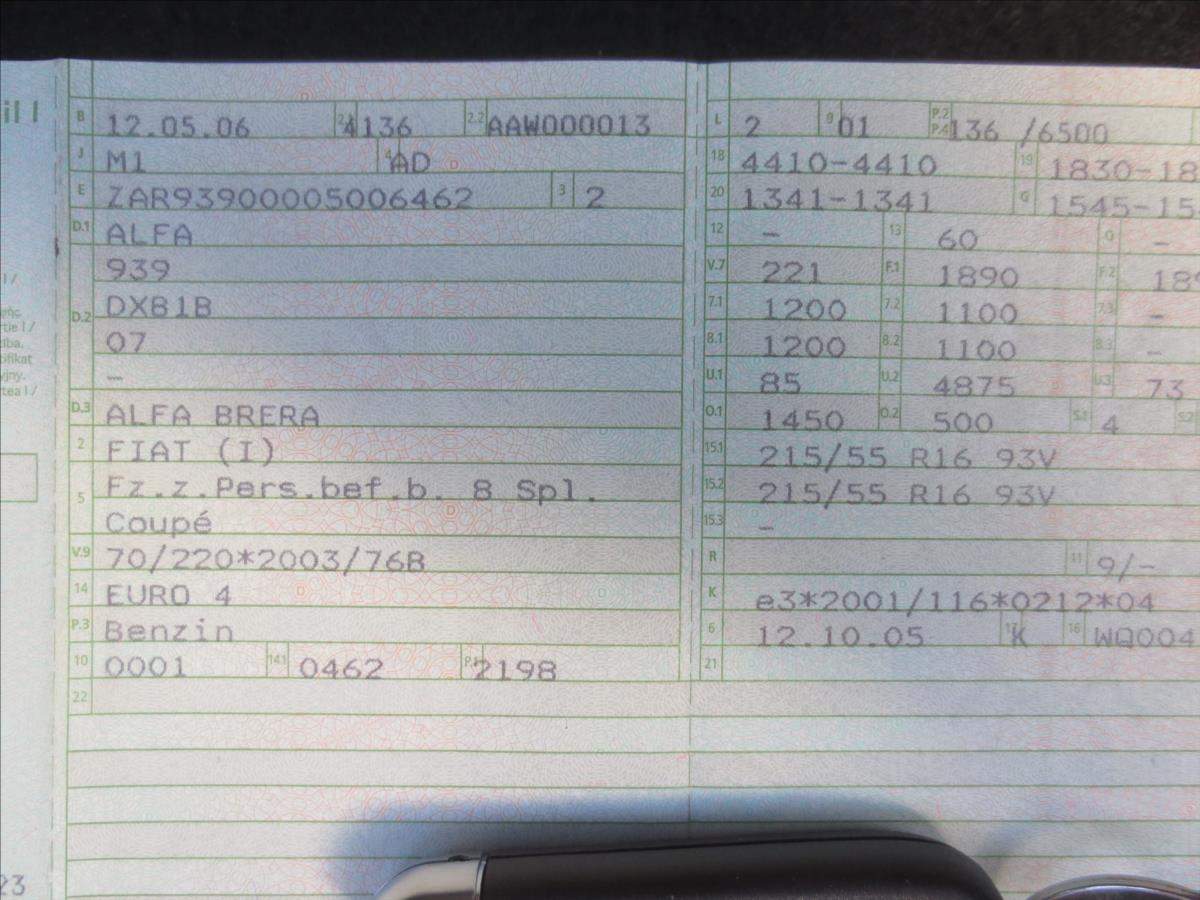 il I
B 12.05.06 2.1 4136 2.2 AAW000013
J M1 4 AD
E ZAR93900005006462 3 2
D.1 ALFA
939
D.2 DXB1B
07
–
D.3 ALFA BRERA
2 FIAT (I)
5 Fz.z.Pers.bef.b. 8 Spl.
Coupé
V.9 70/220*2003/76B
14 EURO 4
P.3 Benzin
10 0001 14.1 0462 P.1 2198
22
L 2 9 01 P.2 P.4 136 /6500
18 4410-4410 19 1830-18
20 1341-1341 G 1545-15
12 – 13 60 Q –
V.7 221 F.1 1890 F.2 189
7.1 1200 7.2 1100 7.3 –
8.1 1200 8.2 1100 8.3 –
U.1 85 U.2 4875 U.3 73
O.1 1450 O.2 500 S.1 4 S.2
15.1 215/55 R16 93V
15.2 215/55 R16 93V
15.3 –
R 11 9/–
K e3*2001/116*0212*04
6 12.10.05 17 K 16 WQ004
21
23